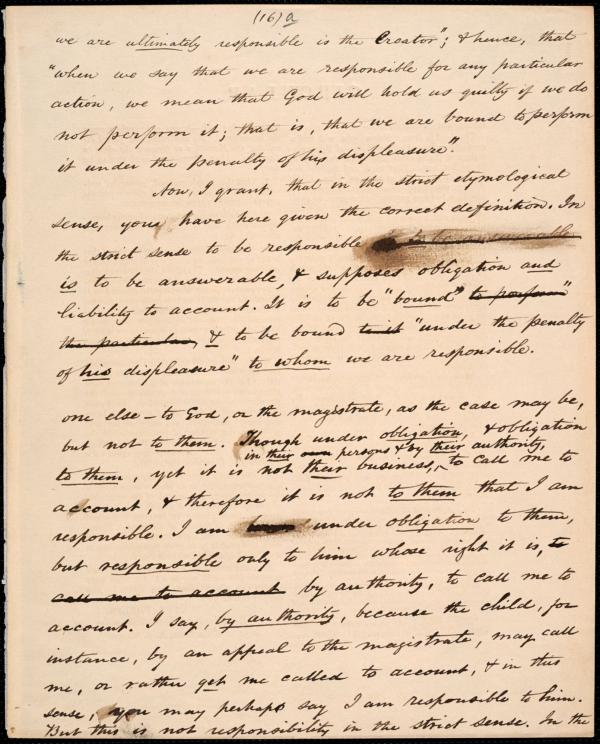 (16) a
we are ultimately responsible is the Creator"; & hence, that
"when we say that we are responsible for any particular
action, we mean that God will hold us guilty if we do
not perform it; that is, that we are bound to perform
it under the penalty of his displeasure".
Now, I grant, that in the strict etymological
sense, you have here given the correct definition. In
the strict sense to be responsible to be answerable
is to be answerable, & supposes obligation and
liability to account. It is to be "bound" to perform"
the particular, & to be bound to it "under the penalty
of his displeasure" to whom we are responsible.
one else - to God, or the magistrate, as the case may be,
but not to them. Though under obligation, & obligation
in their own persons & by their authority,
to them, yet it is not their business, to call me to
account, & therefore it is not to them that I am
responsible. I am under obligation to them,
but responsible only to him whose right it is, to
call me to account by authority, to call me to
account. I say, by authority, because the child, for
instance, by an appeal to the magistrate, may call
me, or rather get me called to account, & in this
sense, you may perhaps say I am responsible to him.
But this is not responsibility in the strict sense. In the